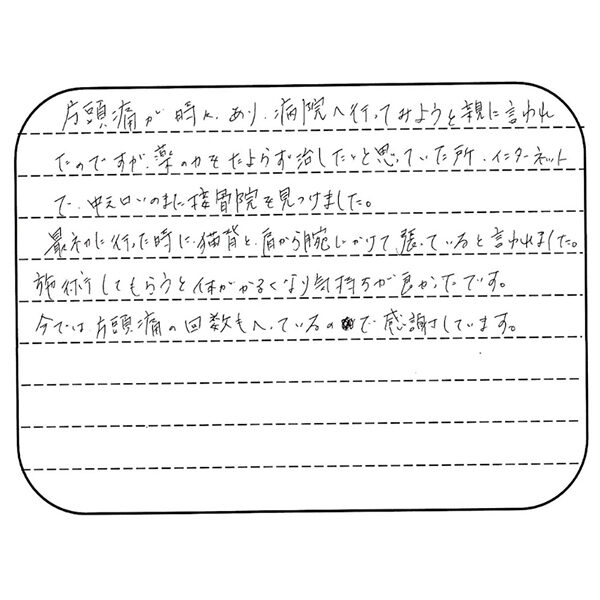 片頭痛が時々あり、病院へ行ってみようと親に言われ
たのですが、薬の力をたよらず治したいと思っていた所、インターネット
で、中えのまた接骨院を見つけました。
最初に行った時に、猫背と、肩から腕にかけて、張っていると言われました。
施術してもらうと体がかるくなり気持ちが良かったです。
今では片頭痛の回数もへっているので感謝しています。